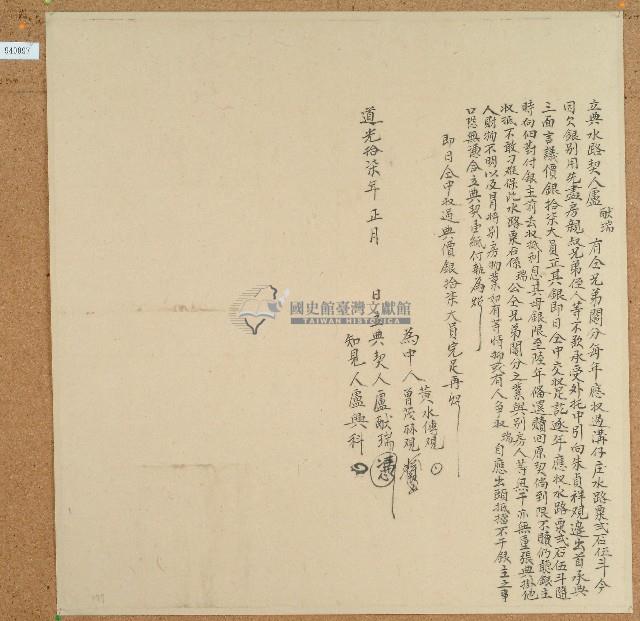 立典水路契人盧獻瑞有仝兄弟鬮分每年應收過溝仔庄水路粟弍石伍斗今
因欠銀別用先盡房親叔兄弟侄人等不欲承受外托中引向朱貞祥觀邊出首承典
三面言議價銀拾柒大員正其銀即日仝中交收足訖逐年應收水路粟弍石伍斗隨
時向佃對付銀主前去收抵利息其母銀限至陸年俻還贖回原契倘到限不贖仍聽銀主
收抵不敢刁难保此水路粟石係瑞公仝兄弟鬮分之業與別房人等無干亦無重張典掛他
人財物不明以及月將別房物業如有
瑞自應出頭抵擋不干銀主之事
口恐無憑合立典契壹紙付執為炤
即日仝中收過典價銀拾柒大員完足再炤
為中人黃水傳觀
曾茂蘇觀
道光拾柒年正月 日立典契人盧獻瑞
知見人盧興科
國史館臺灣文獻館
TAIWAN HISTORICA
940897